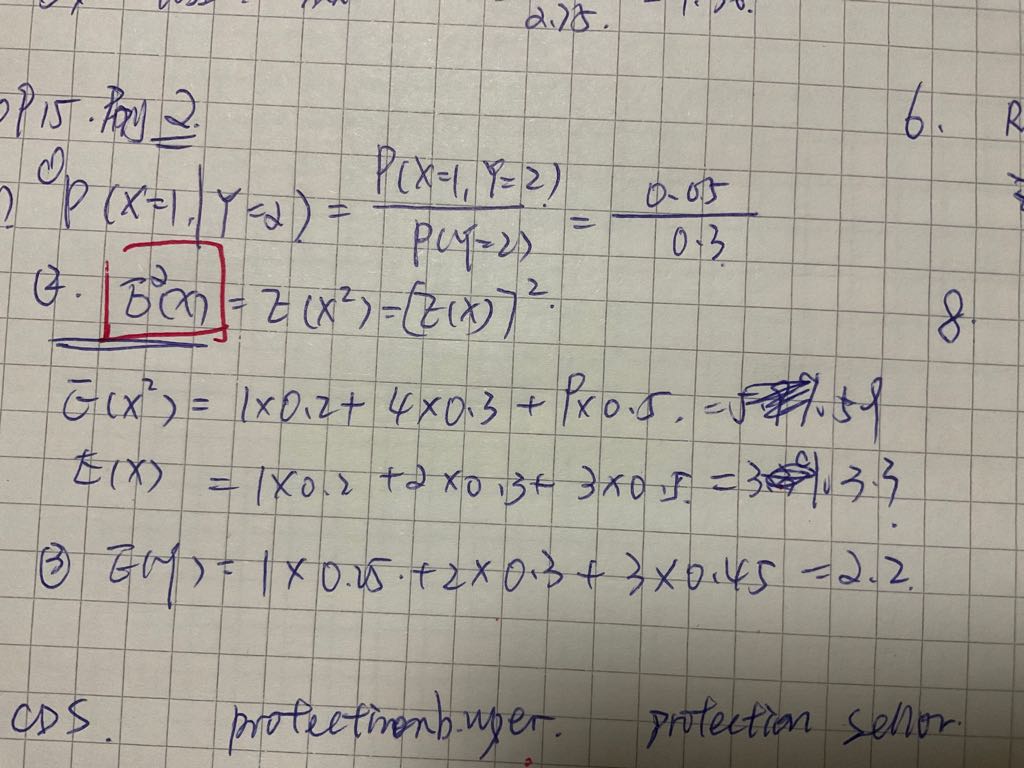 2.75.
P15. 2.
6. R
① P(X=1, | Y=2) = P(X=1, Y=2) / P(Y=2) = 0.05 / 0.3
②. E²(X) = E(X²) = [E(X)]².
8.
E(X²) = 1×0.2 + 4×0.3 + 9×0.5. = 5.59
E(X) = 1×0.2 + 2×0.3 + 3×0.5 = 3.3
③ E(Y) = 1×0.25. + 2×0.3 + 3×0.45 = 2.2.
CDS. protection buyer. protection sellor.